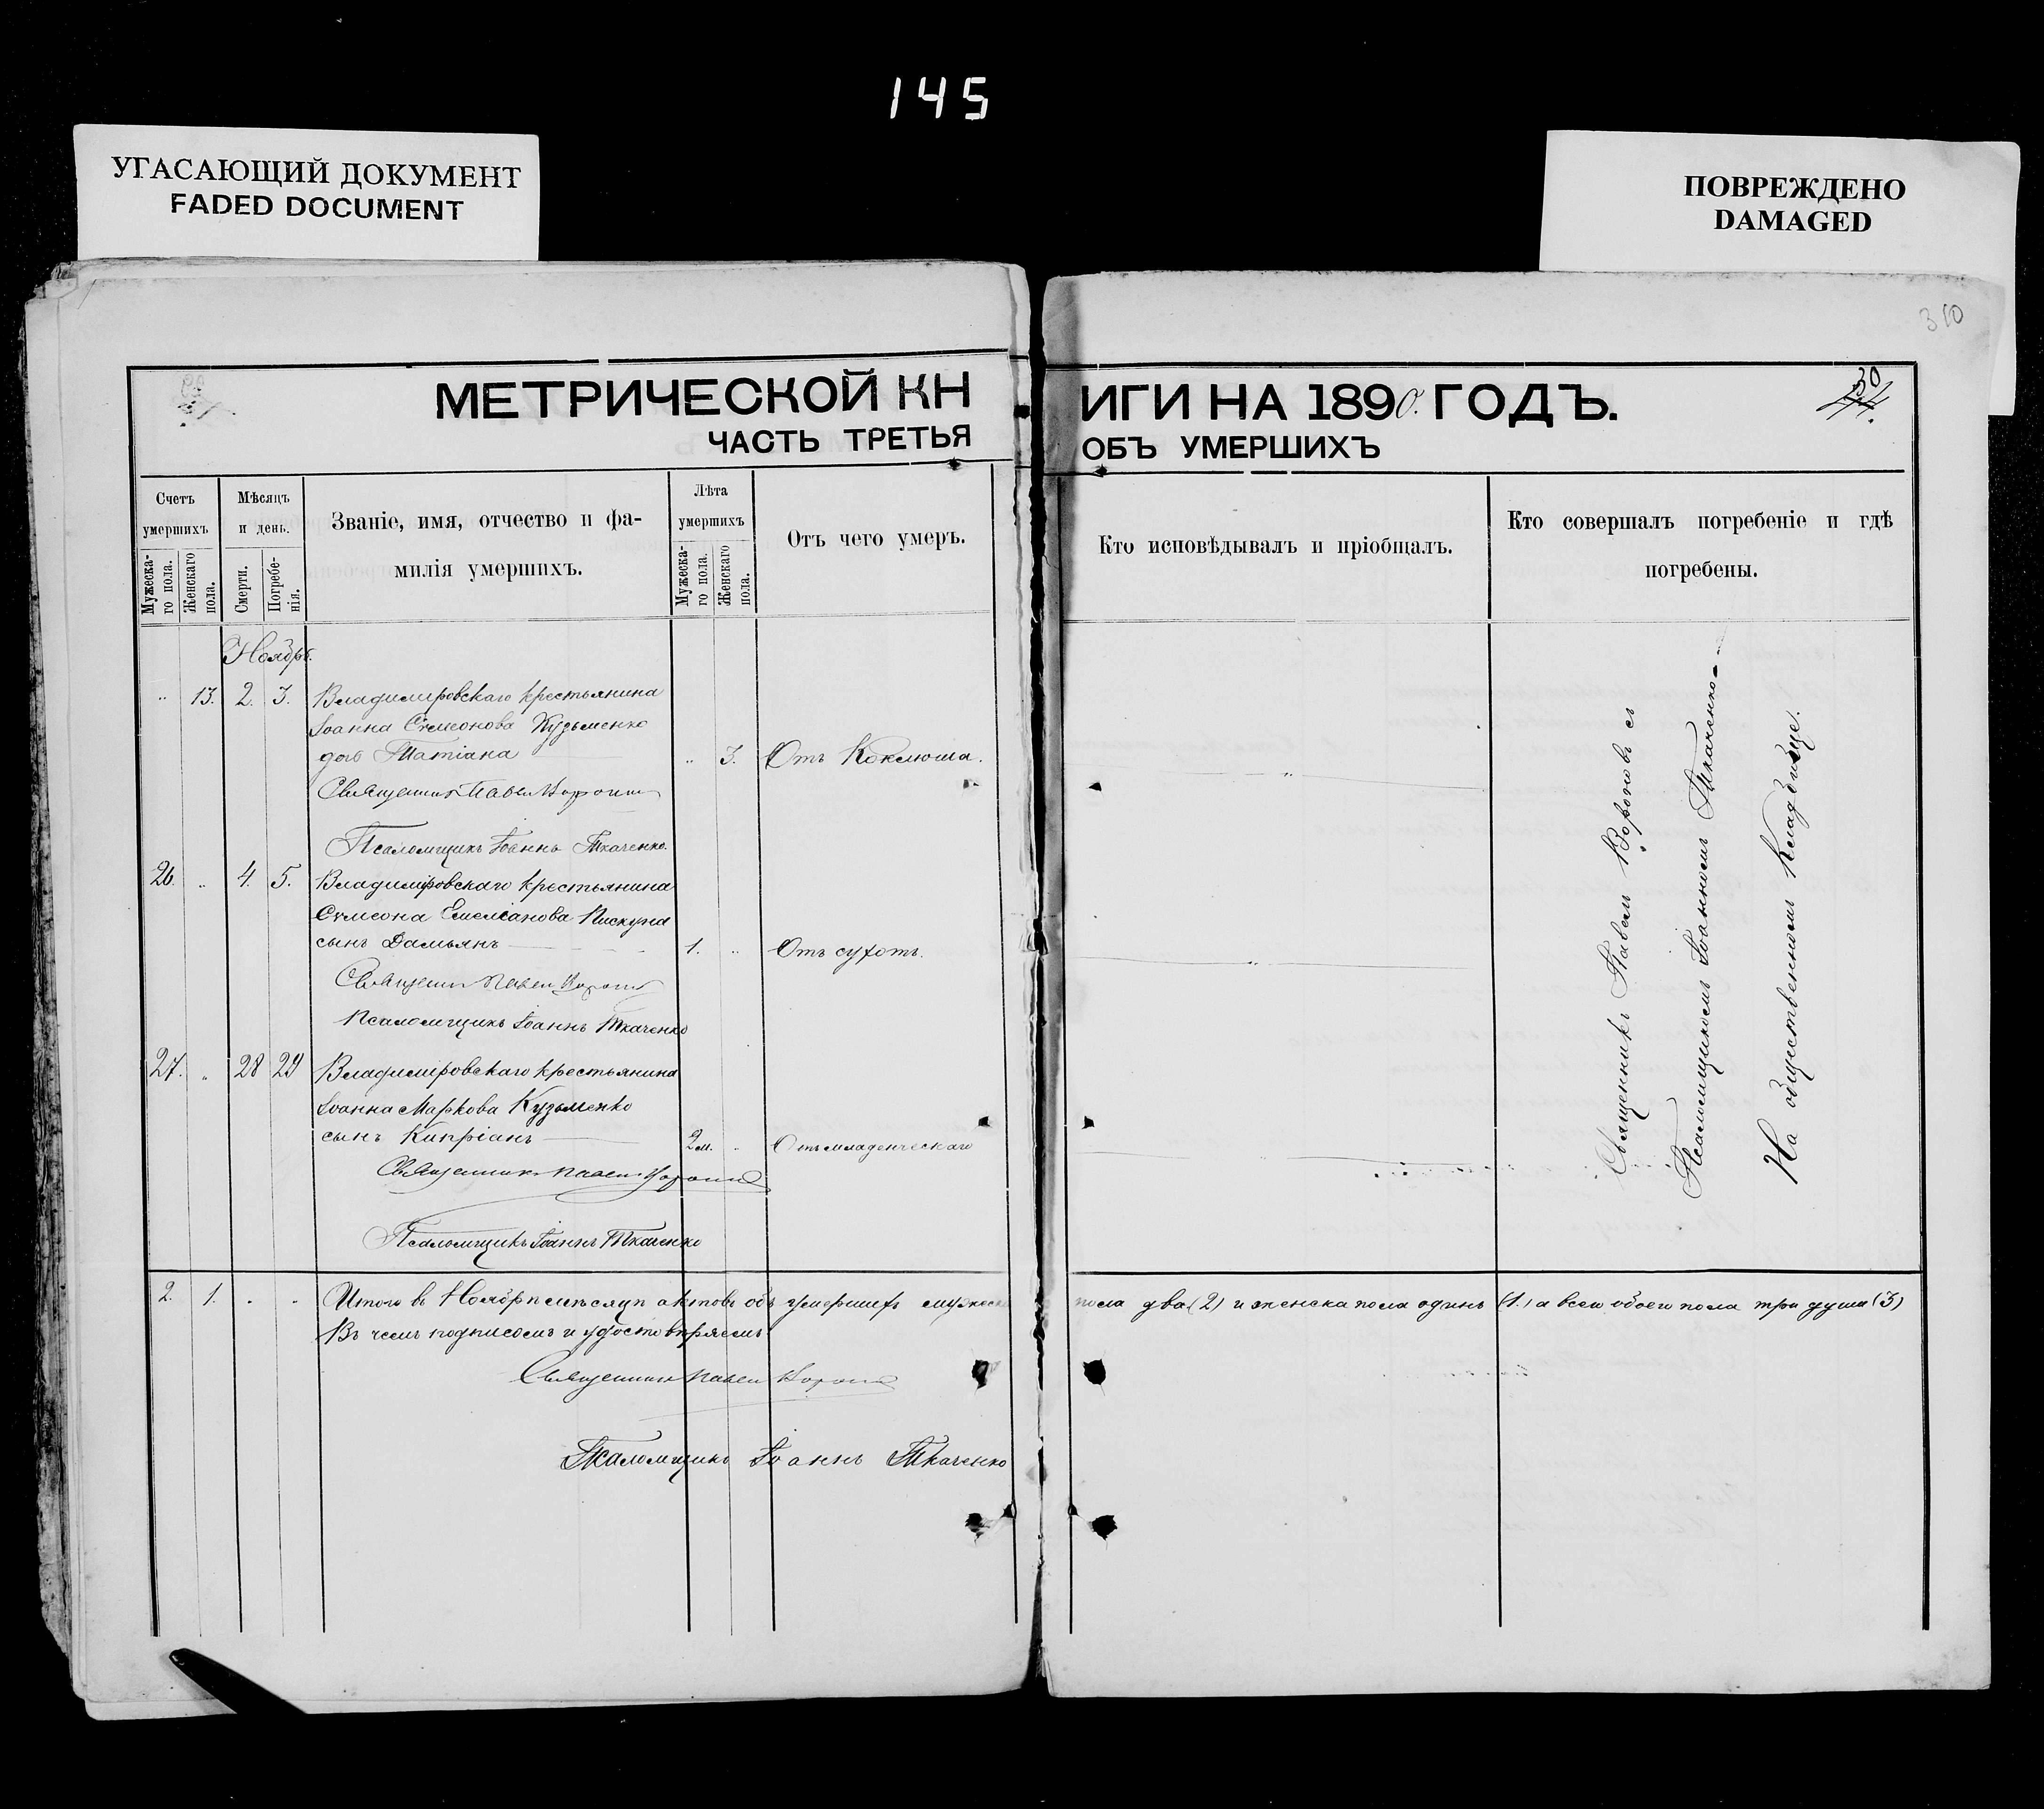 145
УГАСАЮЩИЙ ДОКУМЕНТ
FADED DOCUMENT
ПОВРЕЖДЕНО
DAMAGED
310
30
МЕТРИЧЕСКОЙ КНИГИ НА 1890. ГОДЪ.
ЧАСТЬ ТРЕТЬЯ ОБЪ УМЕРШИХЪ
Счетъ умершихъ
Мужеска-го пола.
Женскаго пола.
Мѣсяцъ и день.
Смерти.
Погребе-нія.
Званіе, имя, отчество и фа-
милія умершихъ.
Лѣта умершихъ
Мужеска-го пола.
Женскаго пола.
Отъ чего умеръ.
Кто исповѣдывалъ и пріобщалъ.
Кто совершалъ погребеніе и гдѣ
погребены.
Ноябрь.
" 13. 2. 3. Владиміровскаго крестьянина
Іоанна Сѵмеонова Кузьменко
дочь Татіана " 3. Отъ Коклюша. "
Священникъ Павелъ
Псаломщикъ Іоаннъ Ткаченко.
26. " 4. 5. Владиміровскаго крестьянина
Сѵмеона Емеліанова Пискуна
сынъ Дамьянъ 1. " Отъ сухотъ. "
Священникъ Павелъ
Псаломщикъ Іоаннъ Ткаченко
27. " 28 29 Владиміровскаго крестьянина
Іоанна Маркова Кузьменко
сынъ Кипріанъ 2 м. " Отъ младенческаго "
Священникъ Павелъ
Псаломщикъ Іоаннъ Ткаченко
Священникъ Павелъ Вороновъ съ
Псаломщикомъ Іоанномъ Ткаченко
На общественномъ Кладбище.
2. 1. " " Итого въ Ноябрѣ мѣсяцѣ актовъ объ умершихъ мужеска пола два (2) и женска пола одинъ (1.) а всего обоего пола три души (3)
Въ чемъ подписомъ и удостовѣряемъ
Священникъ Павелъ
Псаломщикъ Іоаннъ Ткаченко